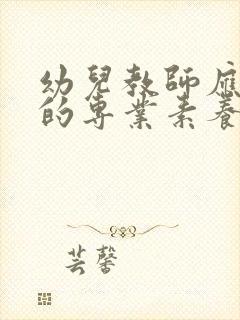 幼兒教師應
的專業素養
芸馨